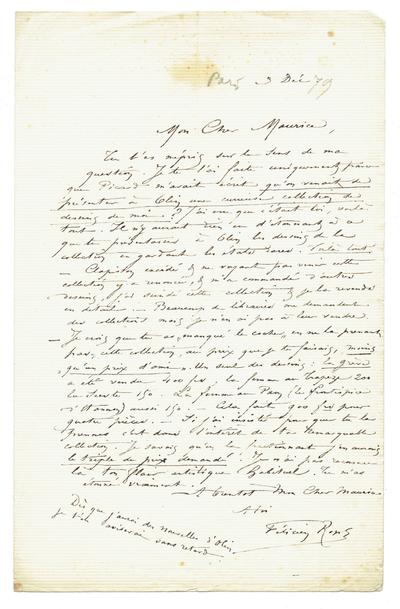 Paris 3 Déc 79
Mon Cher Maurice,
Tu t'es mépris sur le sens de ma
question. Je te l'ai faite uniquement parce
que Picard m'avait écrit qu'on venait de
présenter à Olin une curieuse collection de
dessins de moi. J'ai cru que c'était toi, voilà
tout. Il n'y aurait rien eu d'étonnant à ce
que tu présentasses à Olin les dessins de la
collection en gardant les états rares. Voilà tout
— ne voyant pas venir cette
collection y a renoncé, & m'a commandé d'autres
dessins, j'ai cette collection & je la revends
en détail. — Beaucoup de libraires me demandent
des collections mais je n'en ai pas à leur vendre.
— Je crois que tu as manqué le coche, en ne la prenant
pas, cette collection, au prix que je te faisais, moins
qu'un prix d'ami. Un seul des dessins: la grève
a été vendu 400 frs la femme au Trapèze 200
la 150. — La femme au Pan (le frontispice
d') aussi 150. — Cela fait 900 frs pour
quatre pièces. — Si j'ai insisté pour que tu la
prennes c'est dans l'intérêt de ta remarquable
collection. Je savais qu'en la j'en aurais
le triple du prix demandé. Je n'ai pas reconnu
là ton flair artistique habituel. Tu m'as
étonné vraiment.
— A bientôt Mon Cher Maurice
A toi
Félicien Rops
Dès que j'aurai des nouvelles d'Olin,
je t'en aviserai sans retard.